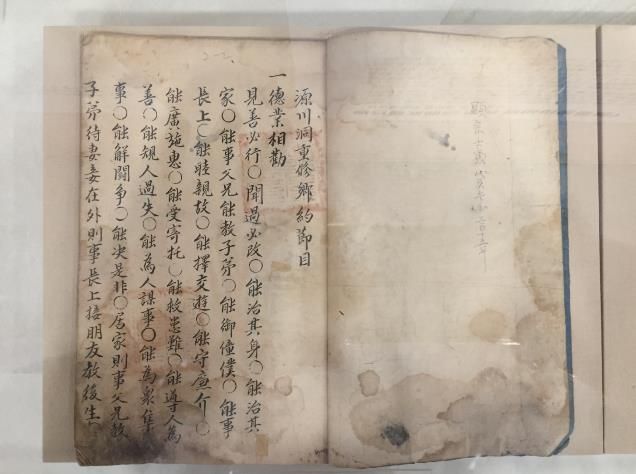 源川洞重修鄉約節目
一德業相勸
見善必行〇聞過必改〇能治其身〇能治其
家〇能事父兄能教子弟〇能御僮僕〇能事
長上〇能睦親故〇能擇交遊〇能守廉介〇
能廣施惠〇能受寄托〇能救患難〇能導人為
善〇能規人過失〇能為人謀事〇能為衆集
事〇能解鬪爭〇能决是非〇居家則事父兄教
子弟待妻妾在外則事長上接朋友教後生